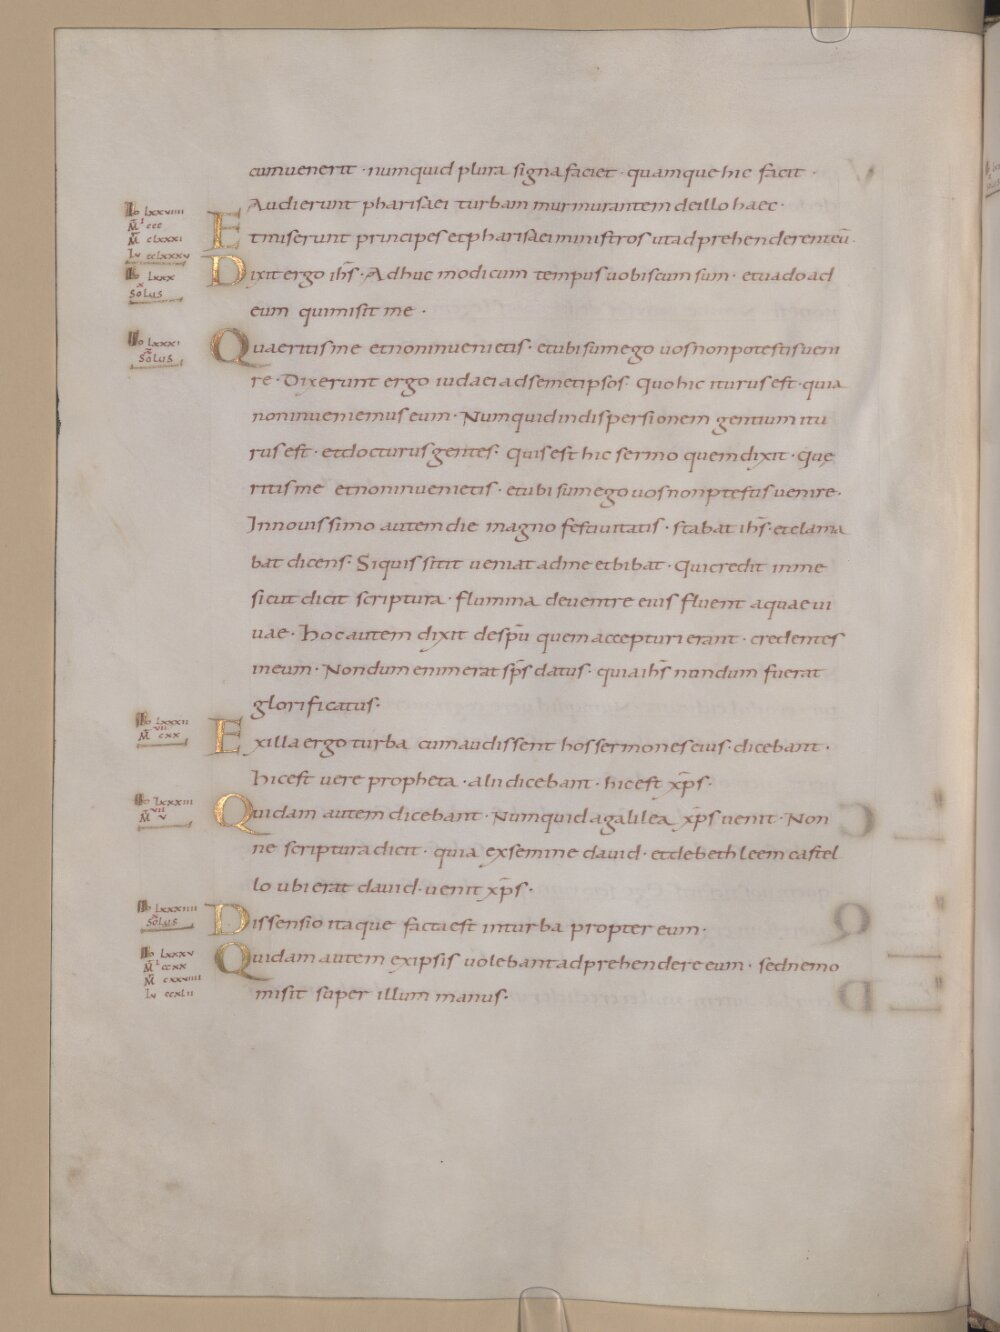 cumuenerit · numquid plura signa faciet · quamque hic facit ·
Audierunt pharisaei turbam murmurantem deillo haec ·
Io lxxviiii
M̄ ccc
M̄ clxxxi
Lu cclxxxv
Et miserunt principes et pharisaei ministros ut adprehenderent eū ·
Io lxxx
Solus
Dixit ergo ih̄s · Adhuc modicum tempus uobiscum sum · et uado ad
eum qui misit me ·
Io lxxxi
Solus
Quaeritis me et non inuenietis · et ubi sum ego uos non potestis ueni
re · Dixerunt ergo iudaei ad semetipsos · Quo hic iturus est · quia
non inueniemus eum · Numquid in dispersionem gentium itu
rus est · et docturus gentes · Quis est hic sermo quem dixit · Quę
ritis me et non inuenietis · et ubi sum ego uos non ptestis uenire ·
In nouissimo autem die magno festiuitatis · stabat ih̄s · et clama
bat dicens · Siquis sitit ueniat ad me et bibat · Qui credit in me
sicut dicit scriptura · flumina de uentre eius fluent aquae ui
uae · Hoc autem dixit de sp̄u quem accepturi erant · credentes
in eum · Nondum enim erat sp̄s datus · quia ih̄s nondum fuerat
glorificatus ·
Io lxxxii
M̄ cxx
Ex illa ergo turba cum audissent hos sermones eius · dicebant ·
hic est uere propheta · alii dicebant · hic est xp̄s ·
Io lxxxiii
M̄ v
Quidam autem dicebant · Numquid a galilea xp̄s uenit · Non
ne scriptura dicit · quia ex semine dauid · et de bethleem castel
lo ubi erat dauid · uenit xp̄s ·
Io lxxxiiii
Solus
Dissensio itaque facta est in turba propter eum ·
Io lxxxv
M̄ ccxx
M̄ cxxviiii
Lu ccxlii
Quidam autem ex ipsis uolebant adprehendere eum · sed nemo
misit super illum manus ·